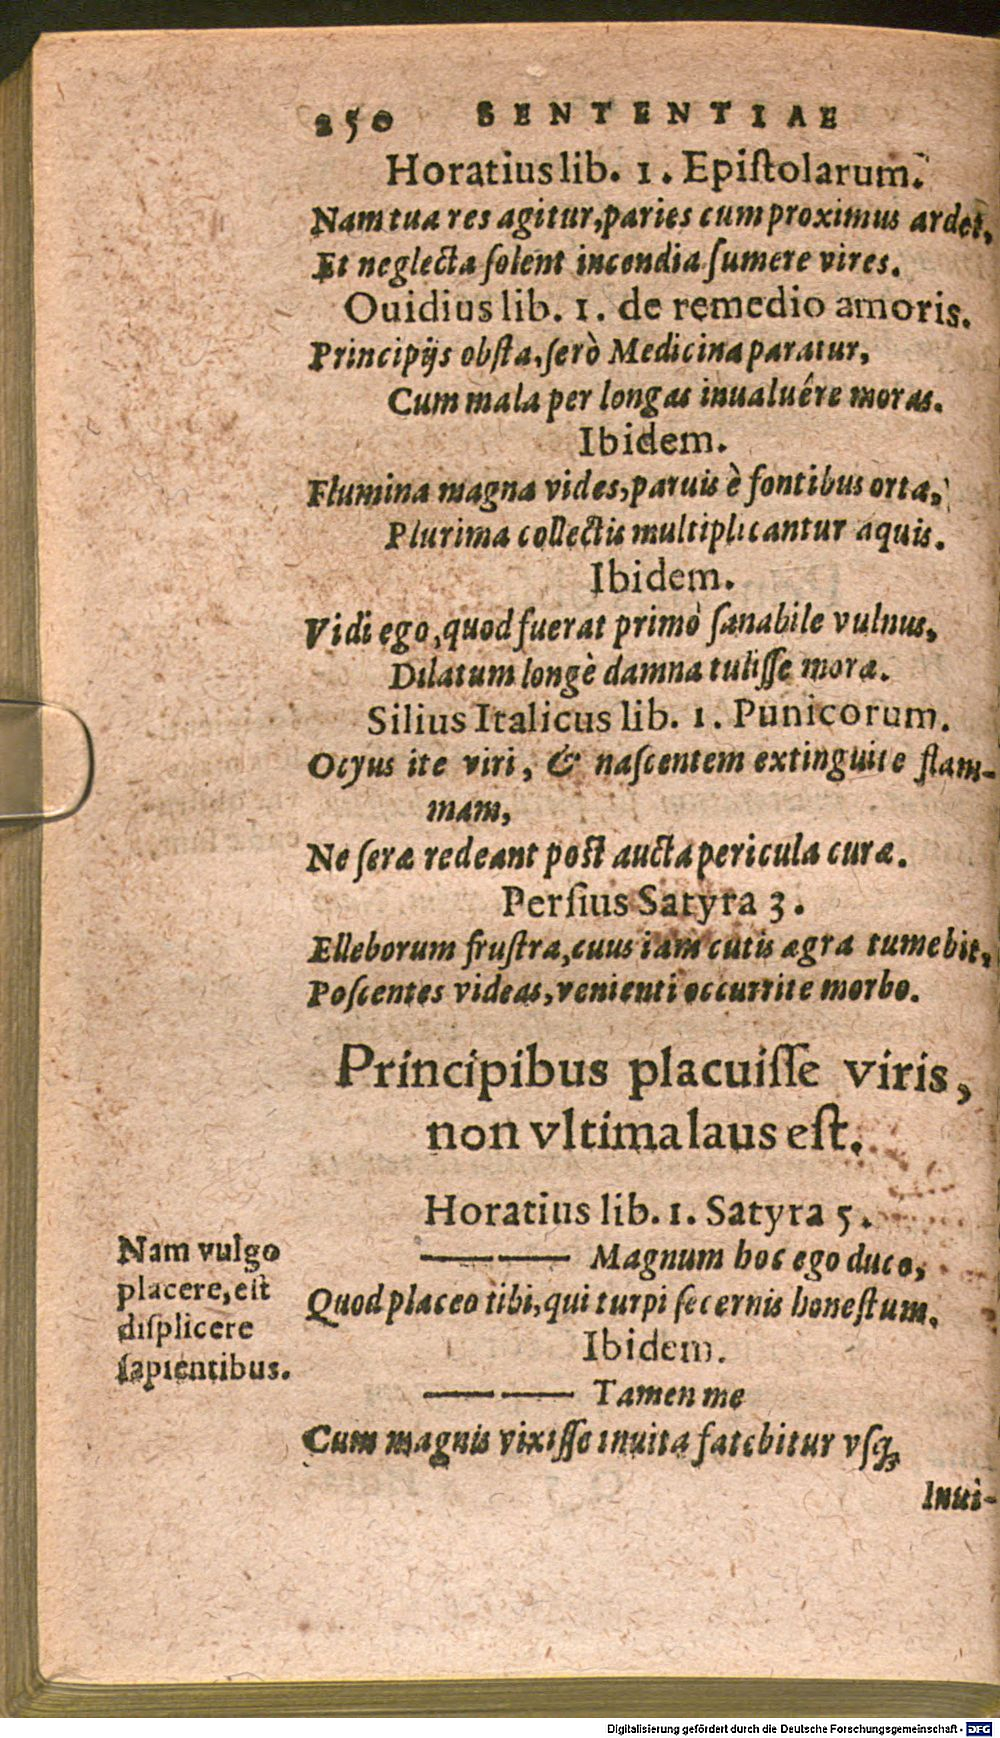 250 SENTENTIAE
Horatius lib. 1. Epiſtolarum.
Nam tua res agitur, paries cum proximus ardet,
Et neglecta ſolent incendia ſumere vires.
Ouidius lib. 1. de remedio amoris.
Principijs obſta, ſerò Medicina paratur,
Cum mala per longas inualuêre moras.
Ibidem.
Flumina magna vides, paruis è fontibus orta,
Plurima collectis multiplicantur aquis.
Ibidem.
Vidi ego, quod fuerat primò ſanabile vulnus,
Dilatum longè damna tuliſſe moræ.
Silius Italicus lib. 1. Punicorum.
Ocyus ite viri, & naſcentem extinguite flam-
mam,
Ne ſeræ redeant poſt aucta pericula curæ.
Perſius Satyra 3.
Elleborum fruſtra, cuus iam cutis ægra tumebit,
Poſcentes videas, venienti occurrite morbo.
Principibus placuiſſe viris,
non vltima laus eſt.
Horatius lib. 1. Satyra 5.
—— —— Magnum hoc ego duco,
Quod placeo tibi, qui turpi ſecernis honeſtum,
Ibidem.
—— —— Tamen me
Cum magnis vixiſſe inuita fatebitur vſq;
Inui-
Nam vulgo
placere, eſt
diſplicere
ſapientibus.
Digitalisierung gefördert durch die Deutsche Forschungsgemeinschaft - DFG